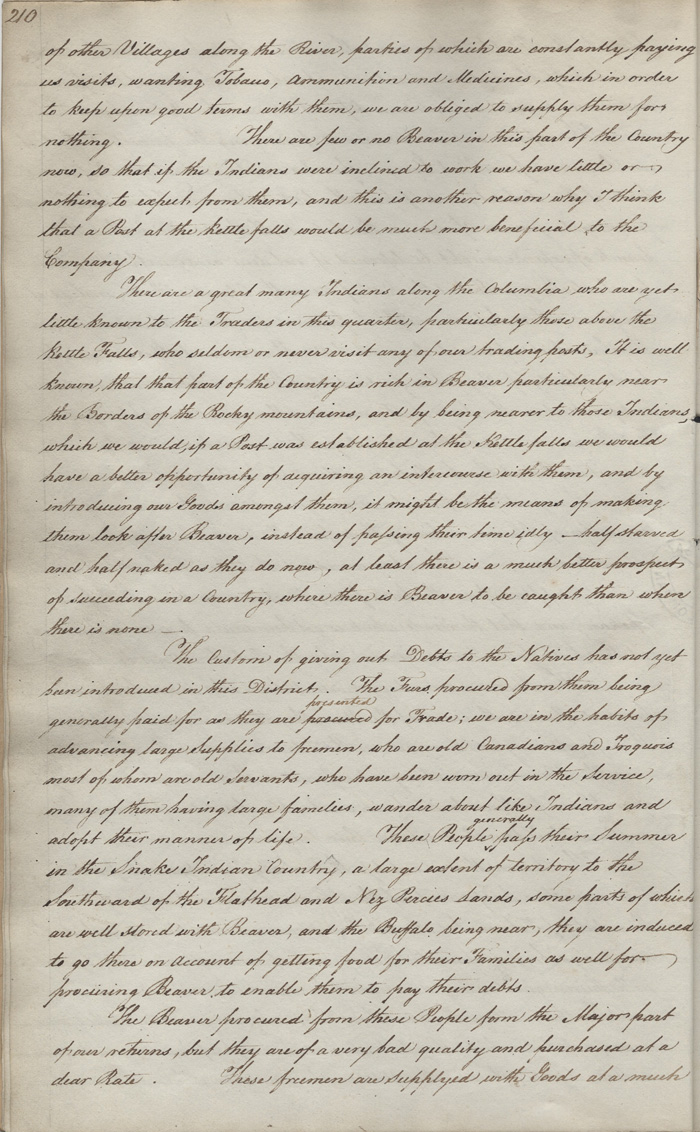 210
of other Villages along the River, parties of which are constantly paying
us visits, wanting Tobacco, Ammunition and Medicines, which in order
to keep upon good terms with them, we are obliged to supply them for
nothing. There are few or no Beaver in this part of the Country
now, so that if the Indians were inclined to work we have little or
nothing to expect from them, and this is another reason why I think
that a Post at the Kettle falls would be much more beneficial to the
Company.
There are a great many Indians along the Columbia who are yet
little known to the Traders in this quarter, particularly those above the
Kettle Falls, who seldom or never visit any of our trading posts, It is well
known, that that part of the Country is rich in Beaver particularly near
the Borders of the Rocky mountains, and by being nearer to those Indians,
which we would, if a Post was established at the Kettle falls we would
have a better opportunity of acquiring an intercourse with them, and by
introducing our Goods amongst them, it might be the means of making
them look after Beaver, instead of passing their time idly – half starved
and half naked as they do now, at least there is a much better prospect
of succeeding in a Country, where there is Beaver to be caught than when
there is none —.
The Custom of giving out Debts to the Natives has not yet
been introduced in this District. The Furs procured from them being
presented
generally paid for as they are procured for Trade; we are in the habits of
advancing large Supplies to freemen, who are old Canadians and Iroquois
most of whom are old Servants, who have been worn out in the Service,
many of them having large families, wander about like Indians and
generally
adopt their manner of life. These People pass their Summer
in the Snake Indian Country, a large extent of territory to the
Southward of the Flathead and Nez Percies Lands, some parts of which
are well stored with Beaver, and the Buffalo being near, they are induced
to go there on account of getting food for their Families as well for
procuring Beaver to enable them to pay their debts.
The Beaver procured from these People form the Major part
of our returns, but they are of a very bad quality and purchased at a
dear Rate. These freemen are Supplyed with Goods at a much